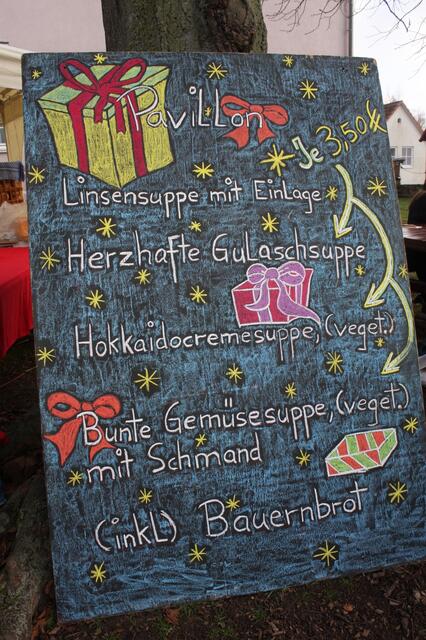 Pavillon
Je 3,50€
Linsensuppe mit Einlage
Herzhafte Gulaschsuppe
Hokkaidocremesuppe, (veget.)
Bunte Gemüsesuppe, (veget.)
mit Schmand
(inkl) Bauernbrot